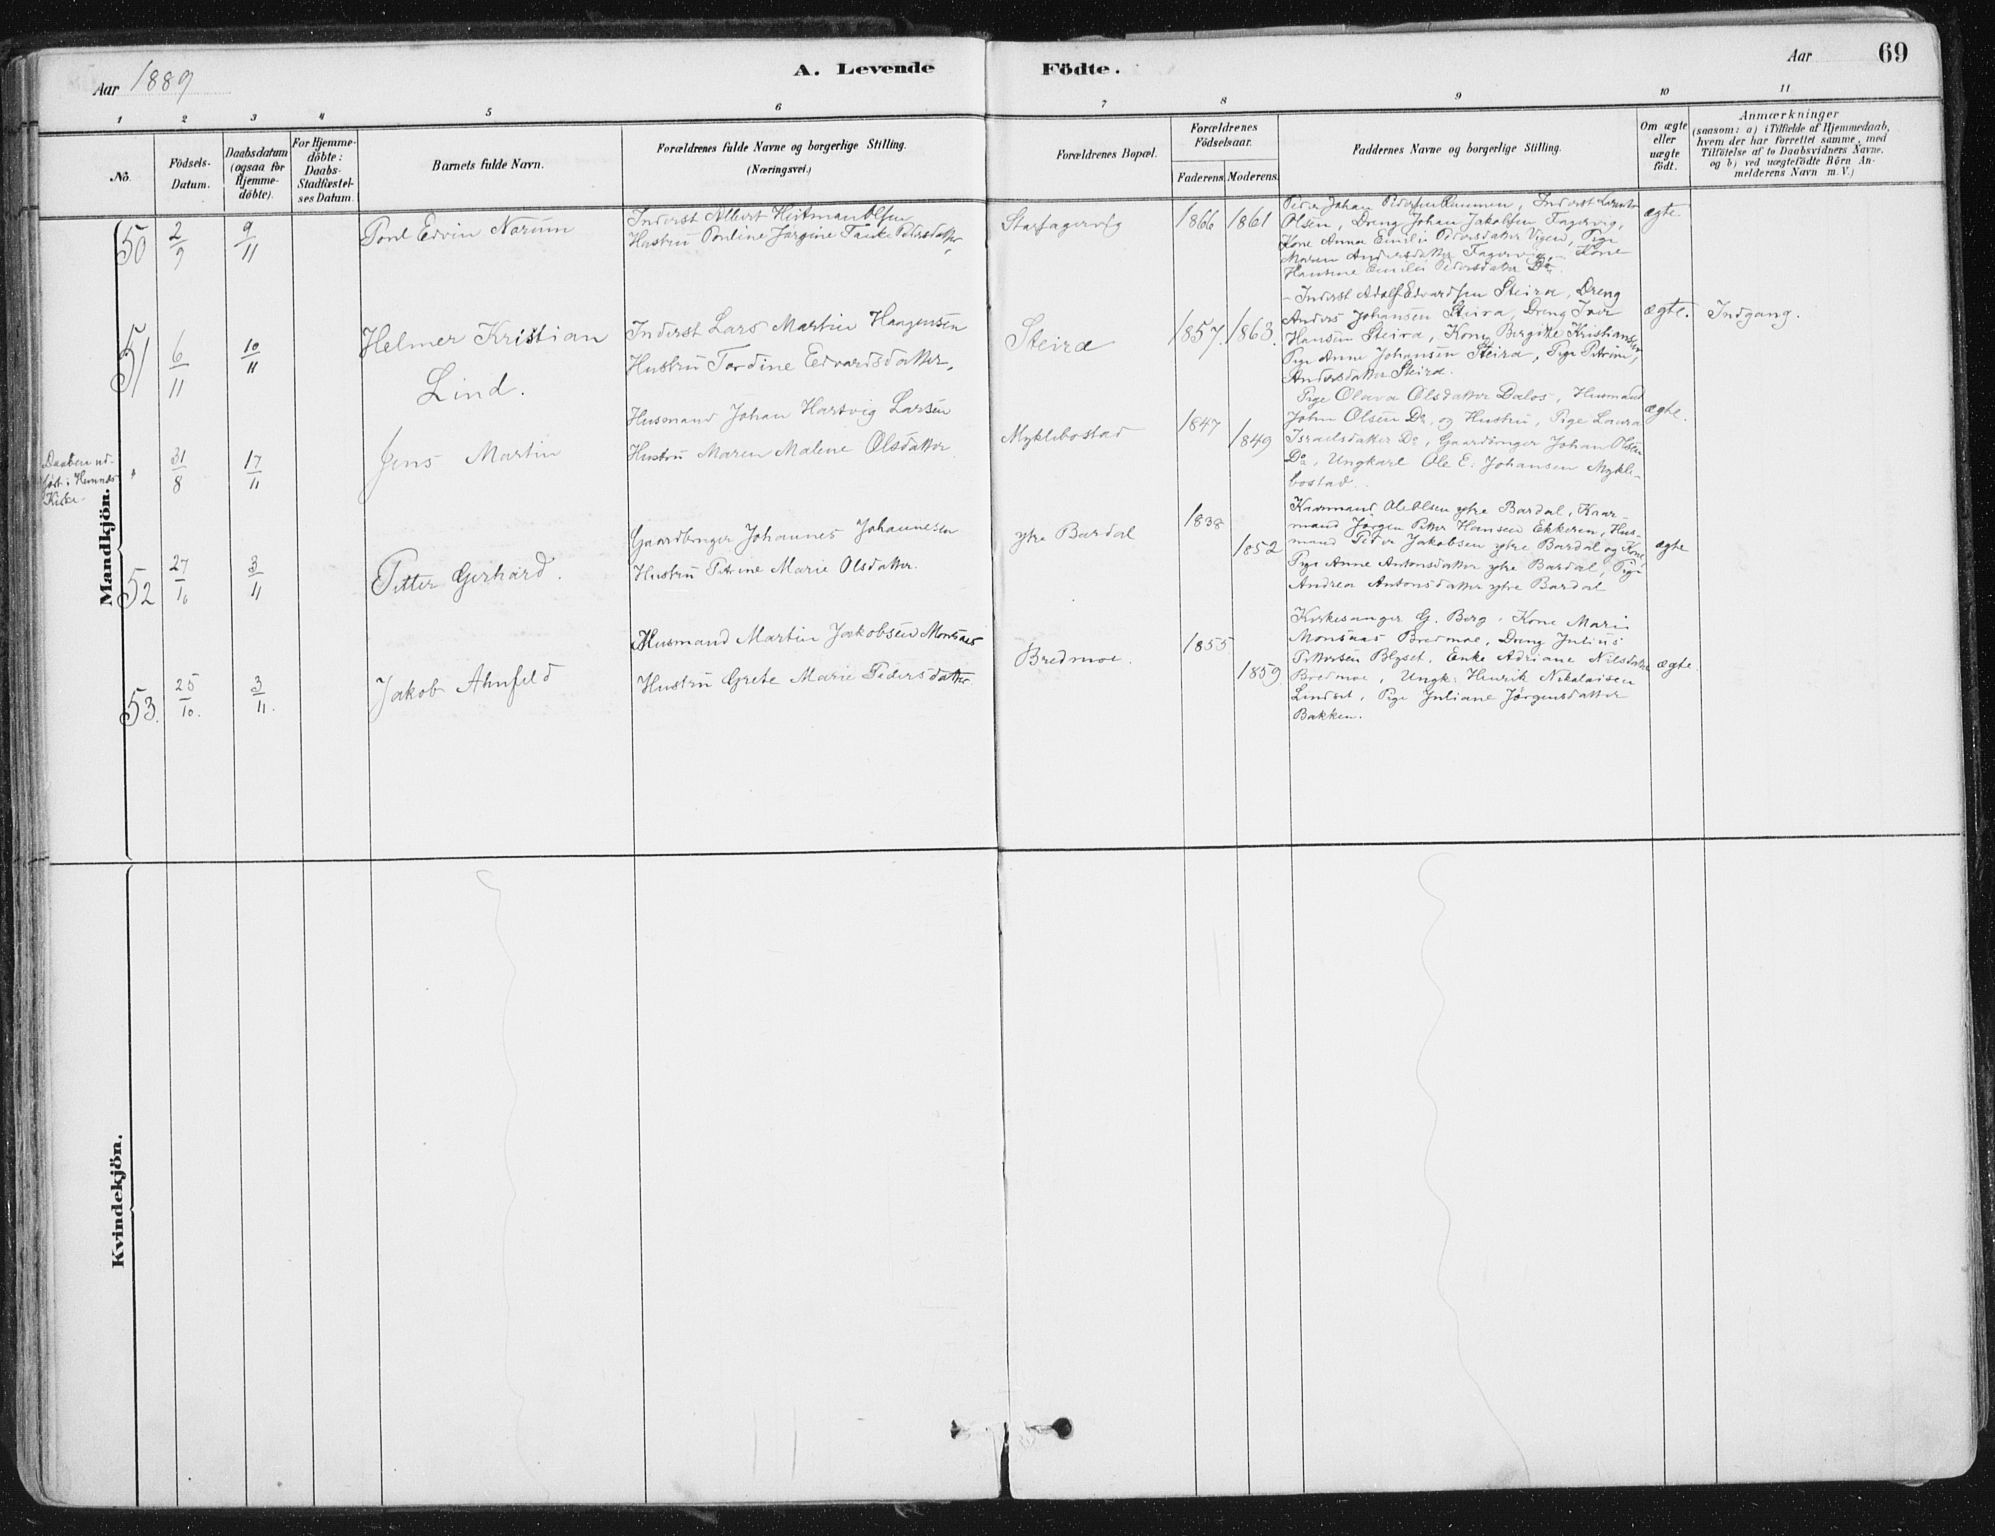 Aar 1889
A. Levende Födte.
Aar 69
1 2 3 4 5 6 7 8 9 10 11
No.
Födsels-
Datum.
Daabsdatum
(ogsaa för
Hjemme-
döbte).
For Hjemme-
döbte:
Daabs-
Stadfæstel-
ses Datum.
Barnets fulde Navn.
Forældrenes fulde Navne og borgerlige Stilling.
(Næringsvei.)
Forældrenes Bopæl.
Forældrenes
Födselsaar.
Faderens. Moderens.
Faddernes Navne og borgerlige Stilling.
Om ægte
eller
uægte
födt.
Anmærkninger
(saasom: a) i Tilfælde af Hjemmedaab,
hvem der har forrettet samme, med
Tilföielse af to Daabsvidners Navne,
og b) ved uægtefödte Börn An-
melderens Navn m. V.)
Mandkjön.
50 2/9 9/11 Poul Edvin Norum
Inderst Albert Heitman Olsen
Hustru Pauline Jørgine Tauke Pedersdatter
1866 1861
Peder Johan Pedersen, Inderst
Olsen, Dreng Johan Jakobsen Fagervig,
Kone Anna Emilie Pedersdatter Vigen, Pige
Maren Andersdatter Fagervig, Kone
Hansine Emilie Pedersdatter Do.
ægte.
51 6/11 10/11 Helmer Kristian
Lind.
Inderst Lars Martin Haagensen
Hustru Tordine Edvardsdatter,
Steira
1857. 1863.
- Inderst Adolf Edvardsen Steira, Dreng
Anders Johansen Steira, Dreng Iver
Hansen Steira, Kone Bergitte Kristiansen
Pige Anne Johansen Steira, Pige Petrine
Andersdatter Steira.
ægte. Indgang.
Daaben ud-
ført i Hemnes
Kirke.
" 31/8 17/11 Jens Martin
Husmand Johan Hartvig Larsen
Hustru Maren Malene Olsdatter
Myklebostad
1847 1849
Pige Olava Olsdatter Dalos, Husmand
John Olsen Do, og Hustru, Pige Laura
Israelsdatter Do, Gaardbruger Johan Olsen
Do, Ungkarl Ole E. Johansen Mykle-
bostad.
ægte.
52 27/10 3/11 Petter Gerhard.
Gaardbruger Johannes Johannesen
Hustru Petrine Marie Olsdatter.
ytre Bardal
1838 1852
Kaarmand Ole Olsen ytre Bardal, Kaar-
mand Jørgen Petter Hansen Ekkeren, Hus-
mand Peder Jakobsen ytre Bardal og Kone,
Pige Anne Antonsdatter ytre Bardal, Pige
Andrea Antonsdatter ytre Bardal
ægte
53. 25/10. 3/11. Jakob Ahnfeld
Husmand Martin Jakobsen Monsaas
Hustru Grete Marie Pedersdatter
Bredmoe.
1855. 1859
Kirkesanger G. Berg, Kone Marie
Monsaas Bredmoe, Dreng Julius
Pettersen Blyset, Enke Adriane Nilsdatter
Bredmoe, Ungk. Henrik Nikolaisen
Lindset, Pige Juliane Jørgensdatter
Bakken.
ægte.
Kvindekjön.